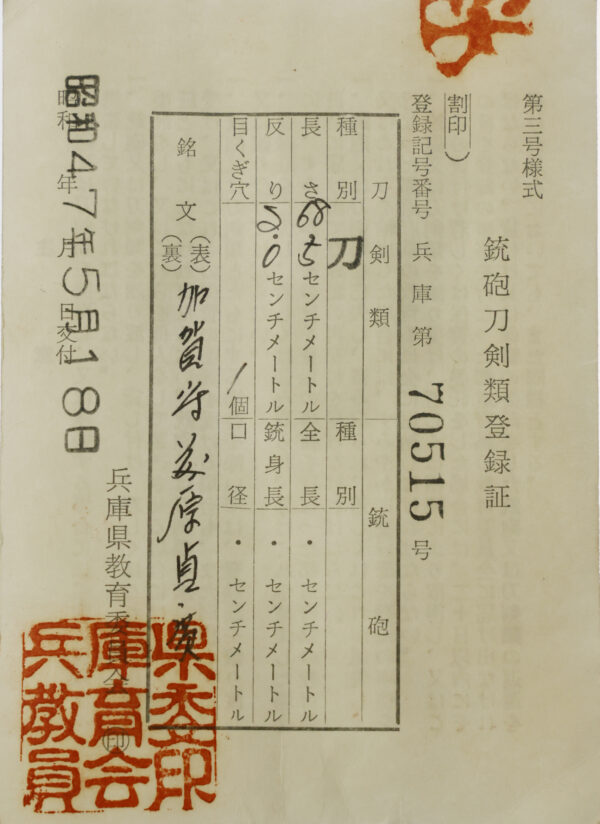 第三号様式
銃砲刀剣類登録証
割印)
登録記号番号 兵庫第 70515 号
刀剣類 銃砲
種別 刀 種別
長さ 68.5 センチメートル 全長 ・ センチメートル
反り 2.0 センチメートル 銃身長 ・ センチメートル
目くぎ穴 1 個 口径 ・ センチメートル
銘文 (表) 加賀守藤原貞
(裏)
兵庫県教育委員会 印
昭和 年 月 日交付
昭和47年5月18日
兵庫県教育委員会印